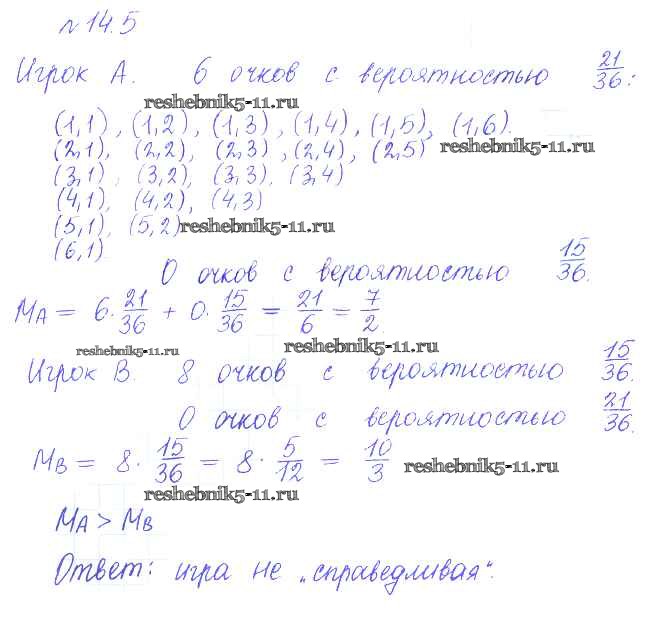 № 14.5
Игрок А. 6 очков с вероятностью 21/36:
reshebnik5-11.ru
(1,1), (1,2), (1,3), (1,4), (1,5), (1,6).
(2,1), (2,2), (2,3), (2,4), (2,5) reshebnik5-11.ru
(3,1), (3,2), (3,3), (3,4)
(4,1), (4,2), (4,3)
(5,1), (5,2) reshebnik5-11.ru
(6,1)
0 очков с вероятностью 15/36.
MA = 6 · 21/36 + 0 · 15/36 = 21/6 = 7/2.
reshebnik5-11.ru reshebnik5-11.ru
Игрок В. 8 очков с вероятностью 15/36.
0 очков с вероятностью 21/36.
MB = 8 · 15/36 = 8 · 5/12 = 10/3 reshebnik5-11.ru
reshebnik5-11.ru
MA > MB
Ответ: игра не „справедливая".